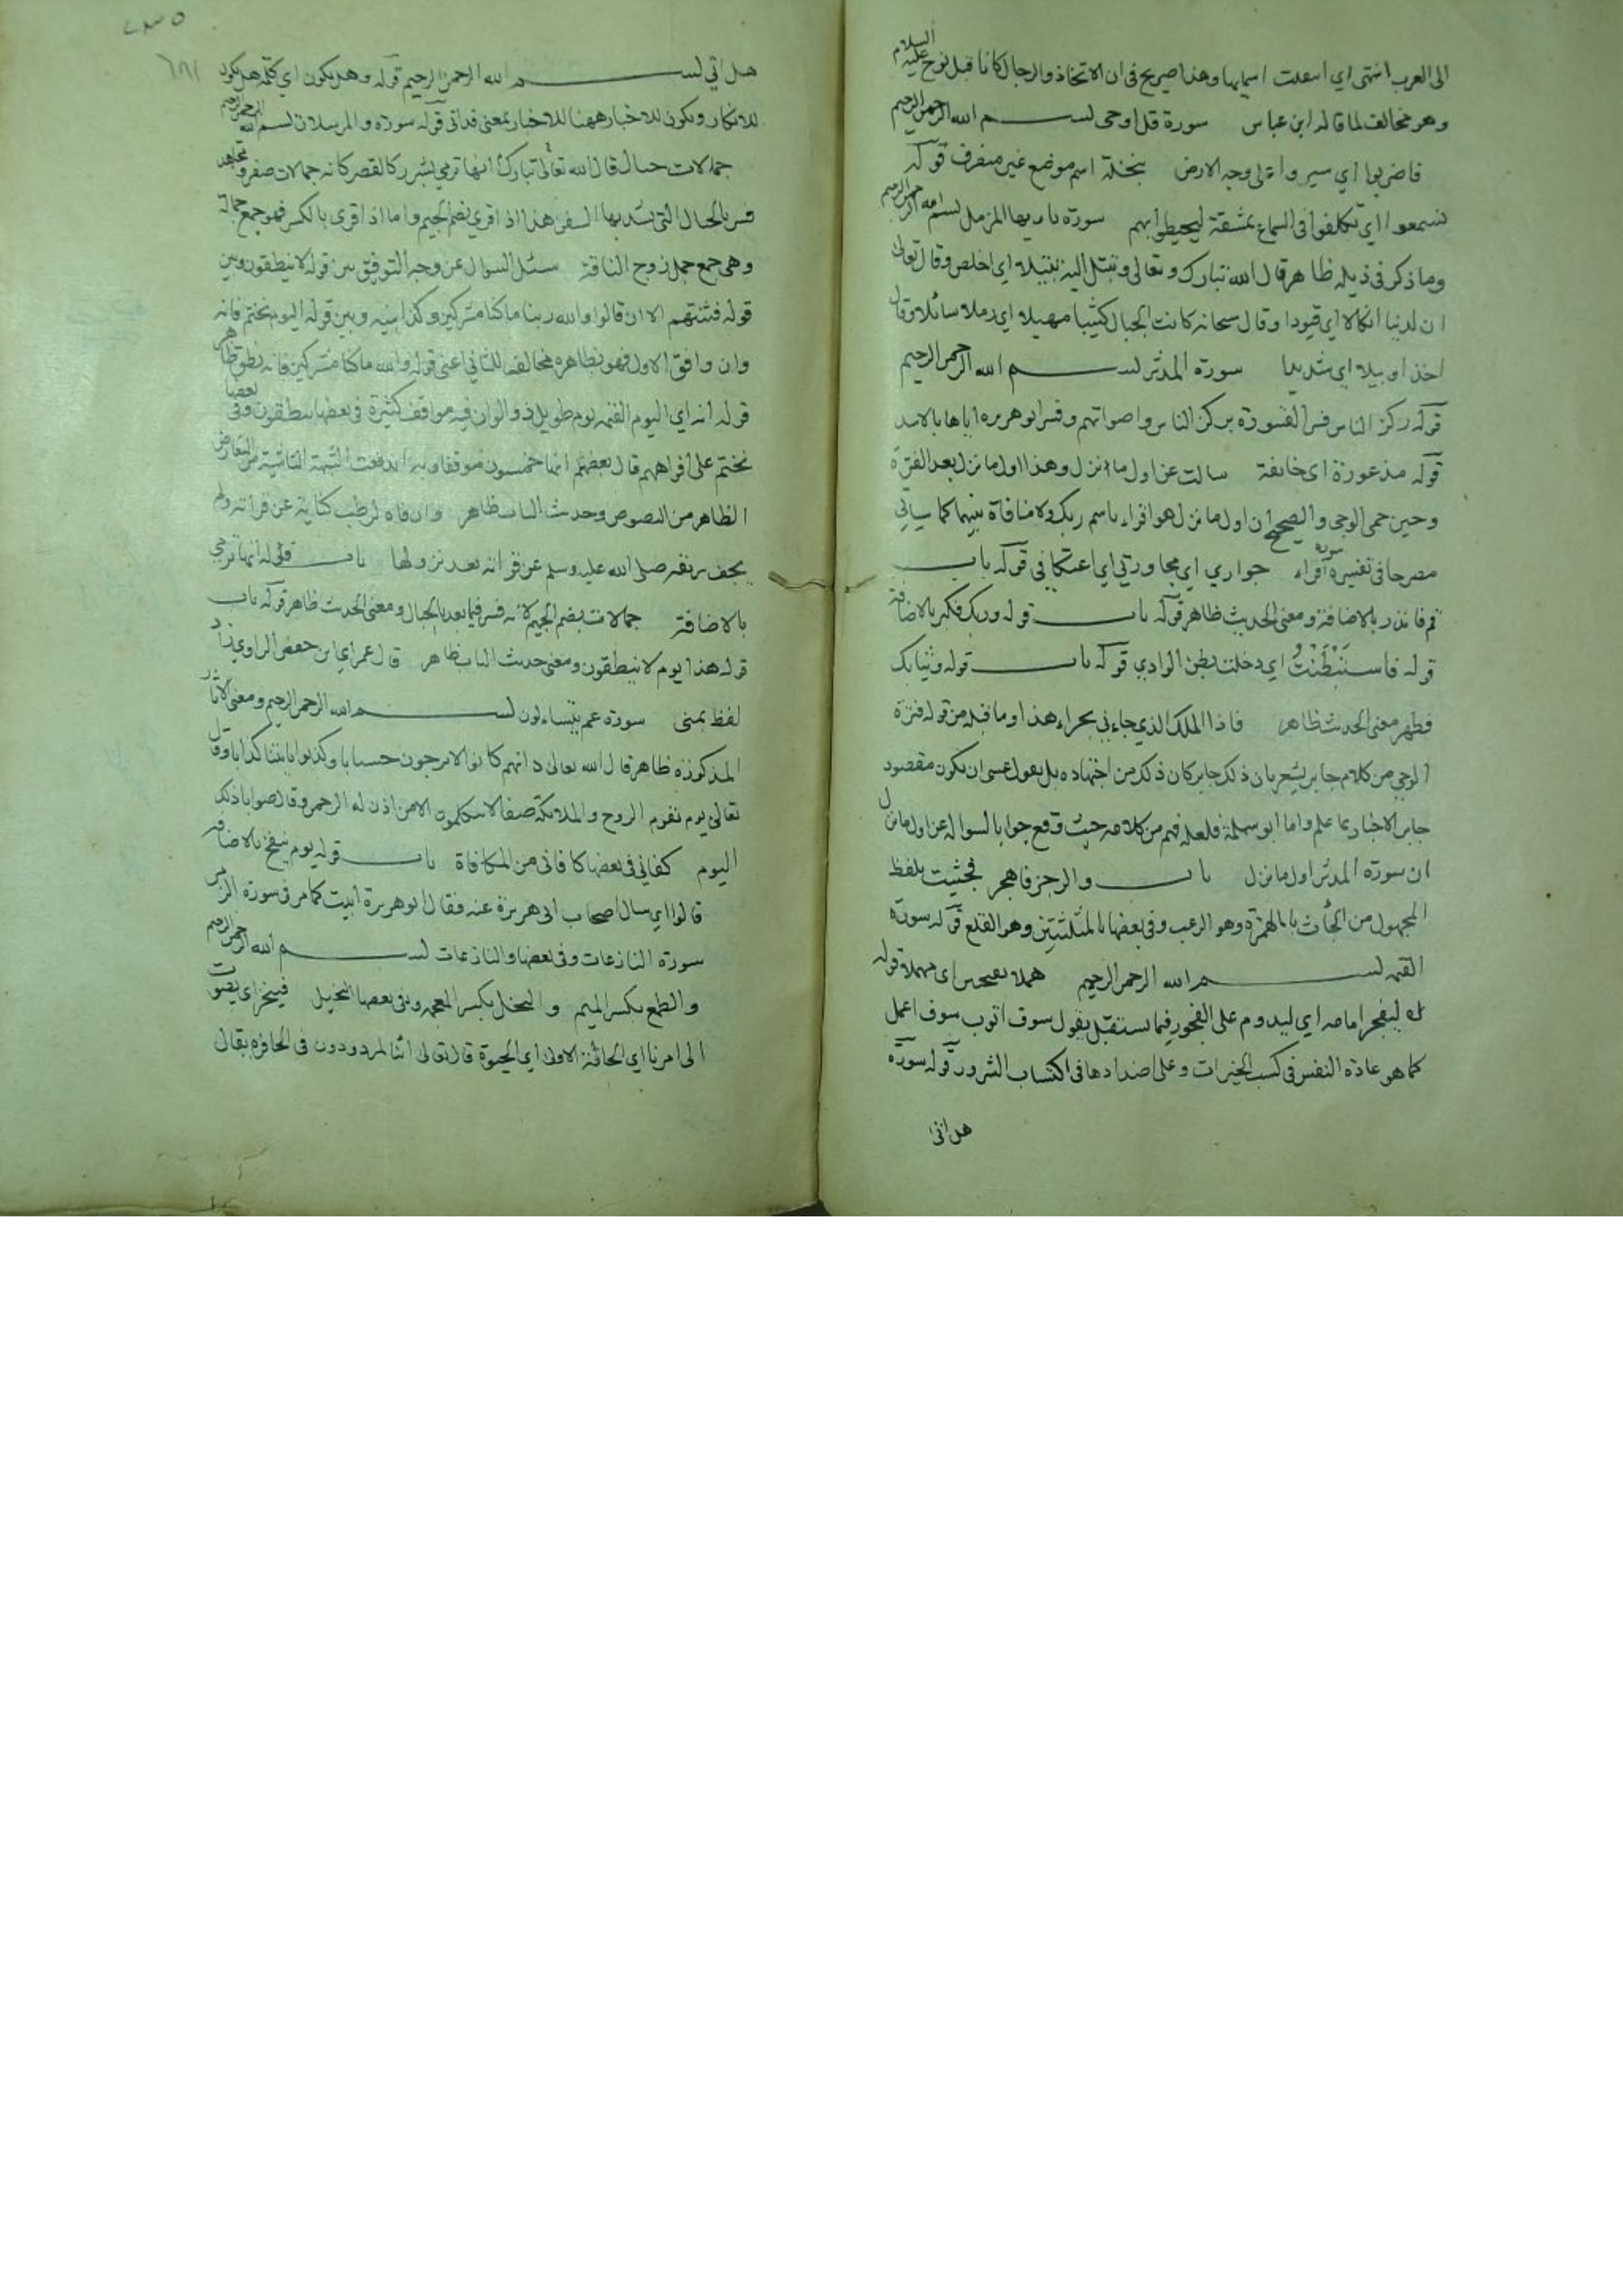 الى العرب انتهى اي اسعلت اسمايها وهذا صريح فى ان الاتخاذ والرجال كانا قبل نوح عليه السلام
وهو مخالف لما قاله ابن عباس سورة قل اوحى بسم الله الرحمن الرحيم
فاضربوا اي سيروا على وجه الارض بنخلة اسم موضع غير منصرف قوله
تسمعوا اي تكلفوا فى السماع بمشقة ليحيطوا بهم سورة يا ايها المزمل بسم الله الرحمن الرحيم
وما ذكر فى ذيله ظاهر قال الله تبارك وتعالى وتبتل اليه تبتيلا اي اخلص وقال تعالى
ان لدينا انكالا اي قيودا وقال سبحانه كانت الجبال كثيبا مهيلا اي رملا سائلا وقال
اخذا وبيلا اي شديدا سورة المدثر بسم الله الرحمن الرحيم
قوله ركز الناس فسر القسورة بركز الناس واصواتهم وفسر ابو هريره اياها بالاسد
قوله مذعورة اى خائفة سالت عن اول ما انزل وهذا اول ما نزل بعد الفترة
وحين حمى الوحي والصحيح ان اول ما نزل هو اقراء باسم ربك ولا منافاة بينهما كما سياتي
مصرحا فى تفسير سورة اقراء جواري اي مجاورتي اي اعتكافي قوله باب
قم فانذر بالاضافة ومعنى الحديث ظاهر قوله باب قوله وربك فكبر بالاضافة
قوله فاستبطنت اي دخلت بطن الوادي قوله باب قوله وثيابك
فطهر معنى الحديث ظاهر فاذا الملك الذي جاءني بحراء هذا وما قبله من قوله فترة
الوحي من كلام جابر يشعر بان ذلك جابر كان ذلك من اجتهاده بل يقول عسى ان يكون مقصود
جابر الاخبار بما علم واما ابو سلمة فلعله فهم من كلامه حيث وقع جوابا لسواله عن اول ما نزل
ان سورة المدثر اول ما نزل باب والرجز فاهجر فجثيت بلفظ
المجهول من الجأث بالهمزة وهو الرعب وفى بعضها بالمثلثتين وهو القلع قوله سورة
القيمه بسم الله الرحمن الرحيم هملا اى مهملا قوله
ليفجر امامه اي ليدوم على الفجور فيما يستقبل يقول سوف اتوب سوف اعمل
كما هو عادة النفس فى كسب الخيرات وعلى اضدادها فى اكتساب الشرور قوله سورة
هل اتى
هل اتى بسم الله الرحمن الرحيم قوله وهل يكون اي كلمة هل يكون
للانكار ويكون للاخبار ههنا للاخبار بمعنى قد اتى قوله سورة والمرسلات بسم الله الرحمن الرحيم
جمالات حبال قال الله تعالى تبارك انها ترمي بشرر كالقصر كانه جمالات صفر ومجاهد
فسر بالحبال التى تشد بها السفن هذا اذا قرى بضم الجيم واما اذا قرى بالكسر فهو جمع جمالة
وهى جمع جمل زوج الناقة سئل السوال عن وجه التوفيق بين قوله لا ينطقون وبين
قوله فتنتهم الا ان قالوا والله ربنا ما كنا مشركين وبين قوله اليوم نختم فانه
وان وافق الاول فهو بظاهره مخالف للثاني اعنى قوله والله ما كنا مشركين فانه نطق ظاهر
قوله انه اي اليوم القيمه يوم طويل ذو الوان فيه مواقف كثيرة فى بعضها ينطقون وفى بعضها
نختم على افواههم قال بعضهم انها خمسون موقفا اندفعت الشبهة الناشية من التعارض
الظاهر من النصوص وحديث الباب ظاهر وان فاه لرطب كناية عن قرائته ولم
يجف ريقه صلى الله عليه وسلم عن قرائته بعد نزولها باب قوله انها ترمي
بالاضافة جمالات بضم الجيم لانه فسر فيما بعد بالحبال ومعنى الحديث ظاهر قوله باب
قوله هذا يوم لا ينطقون ومعنى حديث الباب ظاهر قال عمر اي ابن حفص الراوي زاد
لفظ بمنى سورة عم يتساءلون بسم الله الرحمن الرحيم ومعنى الاثار
المذكورة ظاهر قال الله تعالى انهم كانوا لا يرجون حسابا وكذبوا باياتنا كذابا وقال
تعالى يوم يقوم الروح والملائكة صفا لا يتكلمون الا من اذن له الرحمن وقال صوابا ذلك
اليوم كفاني فى بعضها كافانى من المكافاة باب قوله يوم ينفخ بالاضافة
قالوا اي سال اصحاب ابى هريرة عنه فقال ابو هريرة ابيت كما مر فى سورة الزمر
سورة النازعات وفى بعضها والنازعات بسم الله الرحمن الرحيم
والطمع بكسر الميم والبخل بكسر المعجمه وفى بعضها البخيل فينخر اى يصوت
الى امرنا اي الحالة الاولى اي الحيوة قال تعالى ائنا لمردودون فى الحافرة يقال